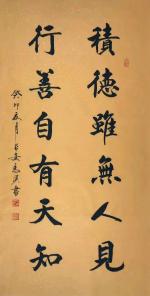 積德雖無人見
行善自有天知
癸卯